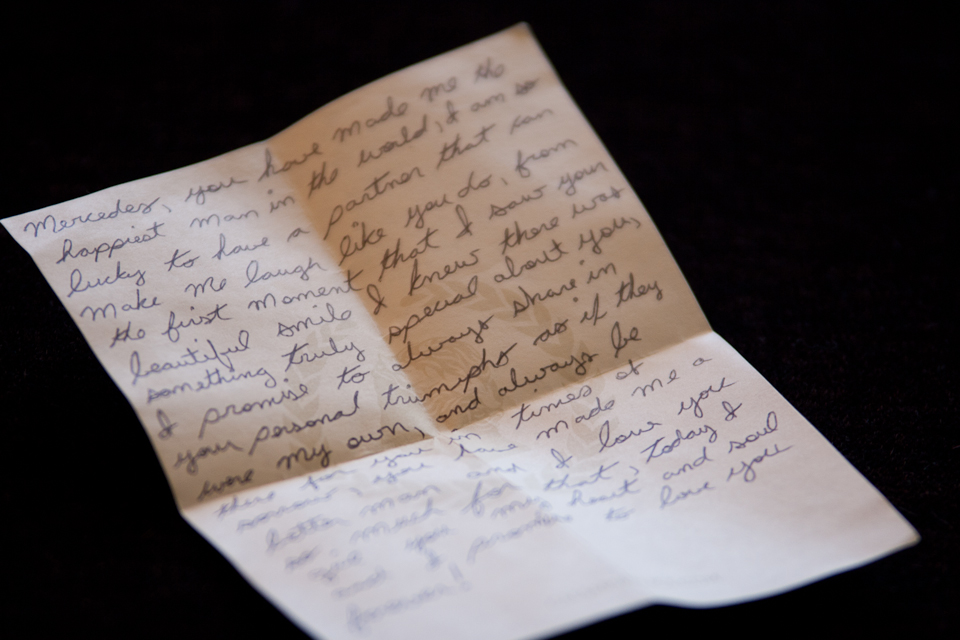 Mercedes, you have made me the
happiest man in the world, I am so
lucky to have a partner that can
make me laugh like you do, from
the first moment that I saw your
beautiful smile I knew there was
something truly special about you,
I promise to always share in
your personal triumphs as if they
were my own, and always be
there for you in times of
sorrow, you have made me a
better man and I love you
so much for that, today I
give you my heart and soul
and I promise to love you
forever!